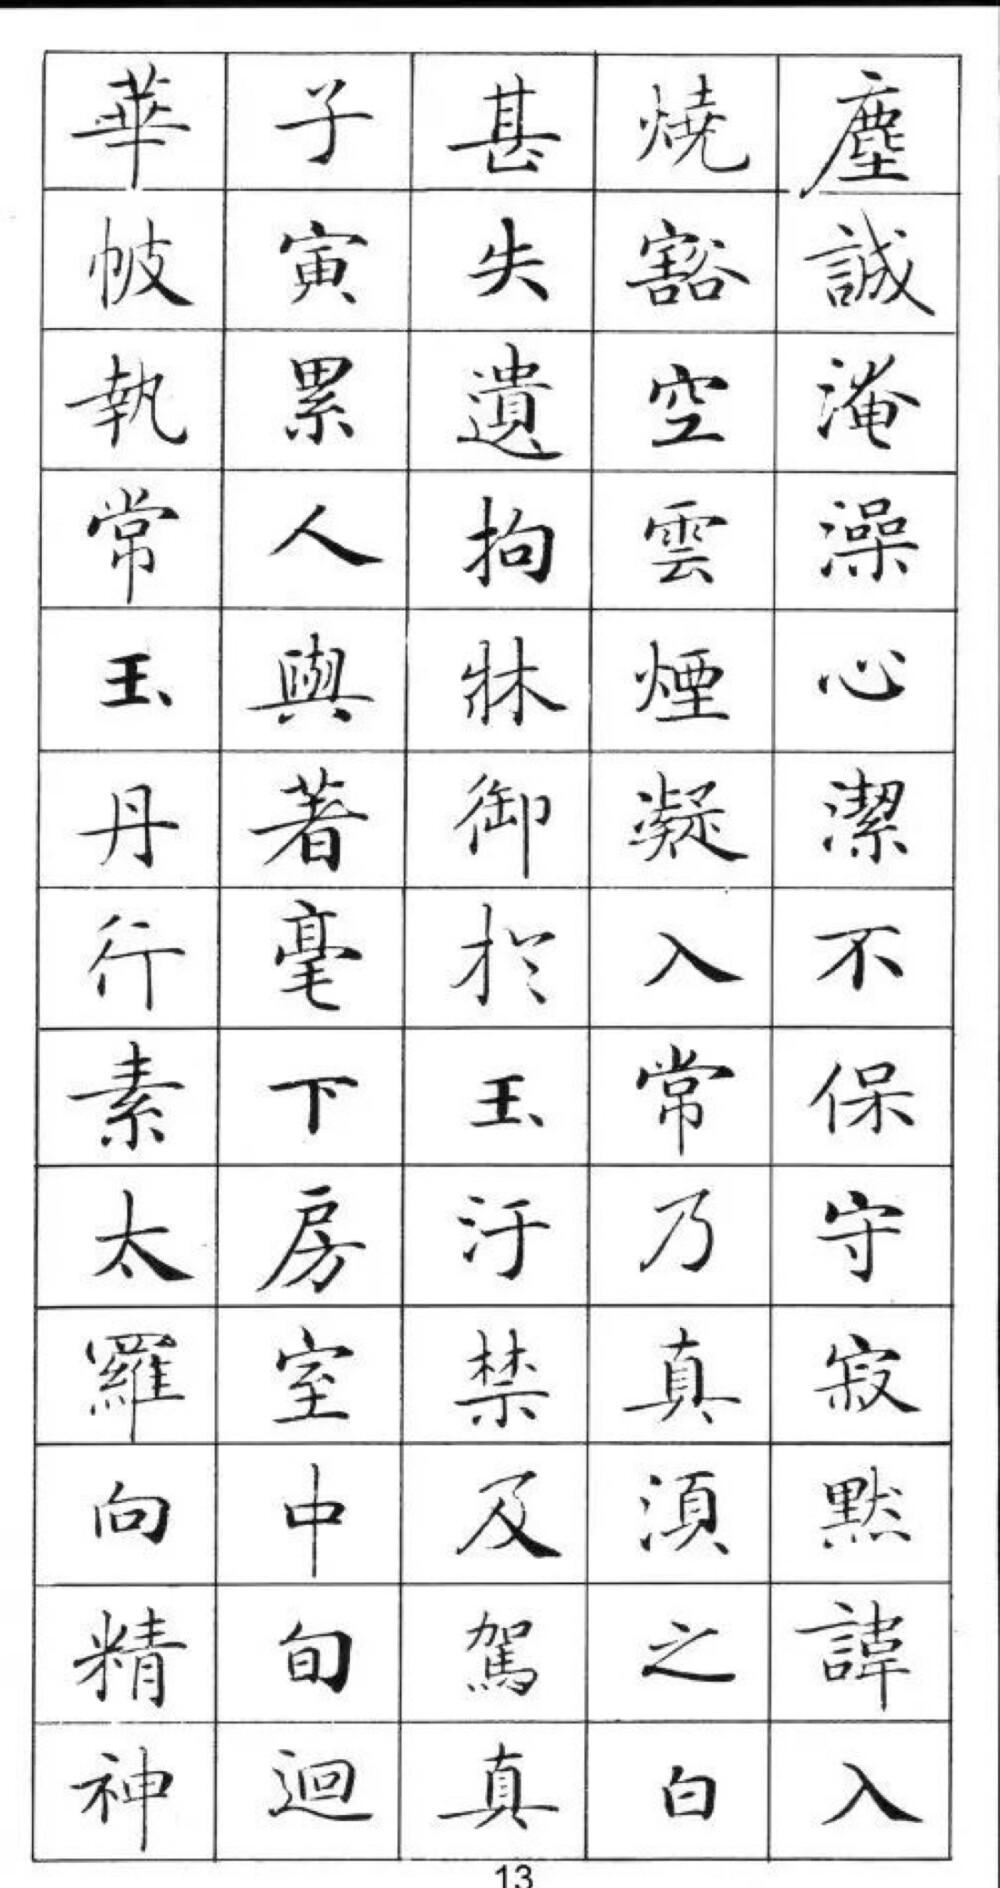 塵誠淹澡心潔不保守寂默諱入
燒豁空雲煙凝入常乃真須之白
甚失遺拘牀御於玉汙禁及駕真
子寅累人與著毫下房室中旬迴
華帔執常玉丹行素太羅向精神
13